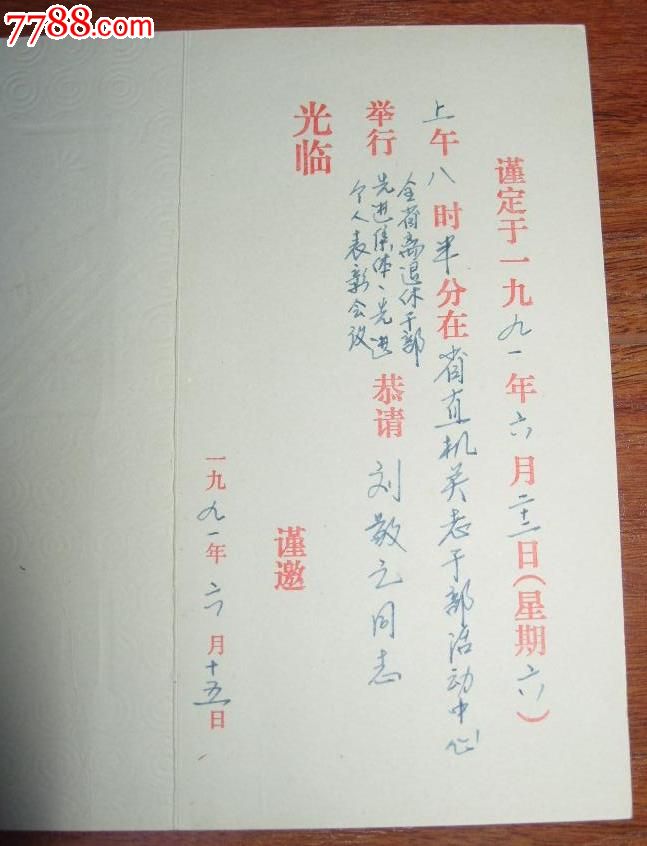 7788.com
谨定于一九九一年六月二十二日(星期六)
上午八时半分在省直机关老干部活动中心
举行
全省离退休干部
先进集体、先进
个人表彰会议
恭请刘敬之同志
光临
谨邀
一九九一年六月十五日